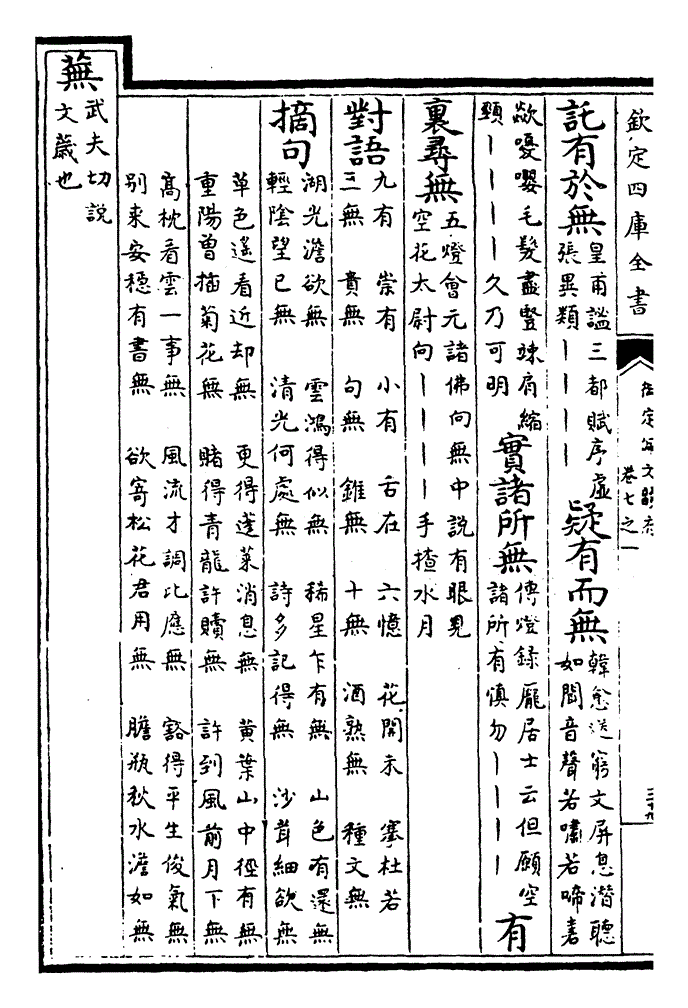 欽定四庫全書
御定佩文韻府
卷七之一
託有於無 皇甫謐三都賦序虛
張異類｜｜｜｜ 疑有而無 韓愈送窮文屏息潛聽
如聞音聲若嘯若啼砉
歘嚘嚶毛髮盡豎竦肩縮
頸｜｜｜｜久乃可明 實諸所無 傳燈録龐居士云但願空
諸所有慎勿｜｜｜｜ 有
裏尋無 五燈會元諸佛向無中説有眼見
空花太尉向｜｜｜｜手揸水月
對語 九有 三無 崇有 貴無 小有 句無 舌在 錐無 六憶 十無 花開未 酒熟無 搴杜若 種文無
摘句 湖光澹欲無 雲鴻得似無 稀星乍有無 山色有還無
輕陰望已無 清光何處無 詩多記得無 沙茸細欲無
草色遙看近却無 更得蓬萊消息無 黃葉山中徑有無
重陽曾插菊花無 賭得青龍許贖無 許到風前月下無
高枕看雲一事無 風流才調比應無 豁得平生俊氣無
別來安穩有書無 欲寄松花君用無 膽瓶秋水澹如無
蕪 武夫切説
文薉也